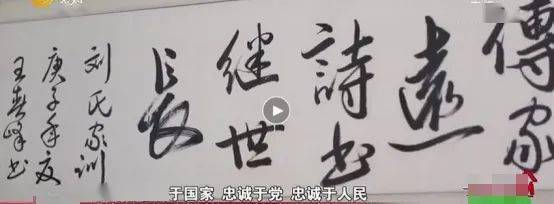 傳家
遠
詩书
继世
長
刘氏家训
庚子年夏
王春峰书
于国家 忠诚于党 忠诚于人民